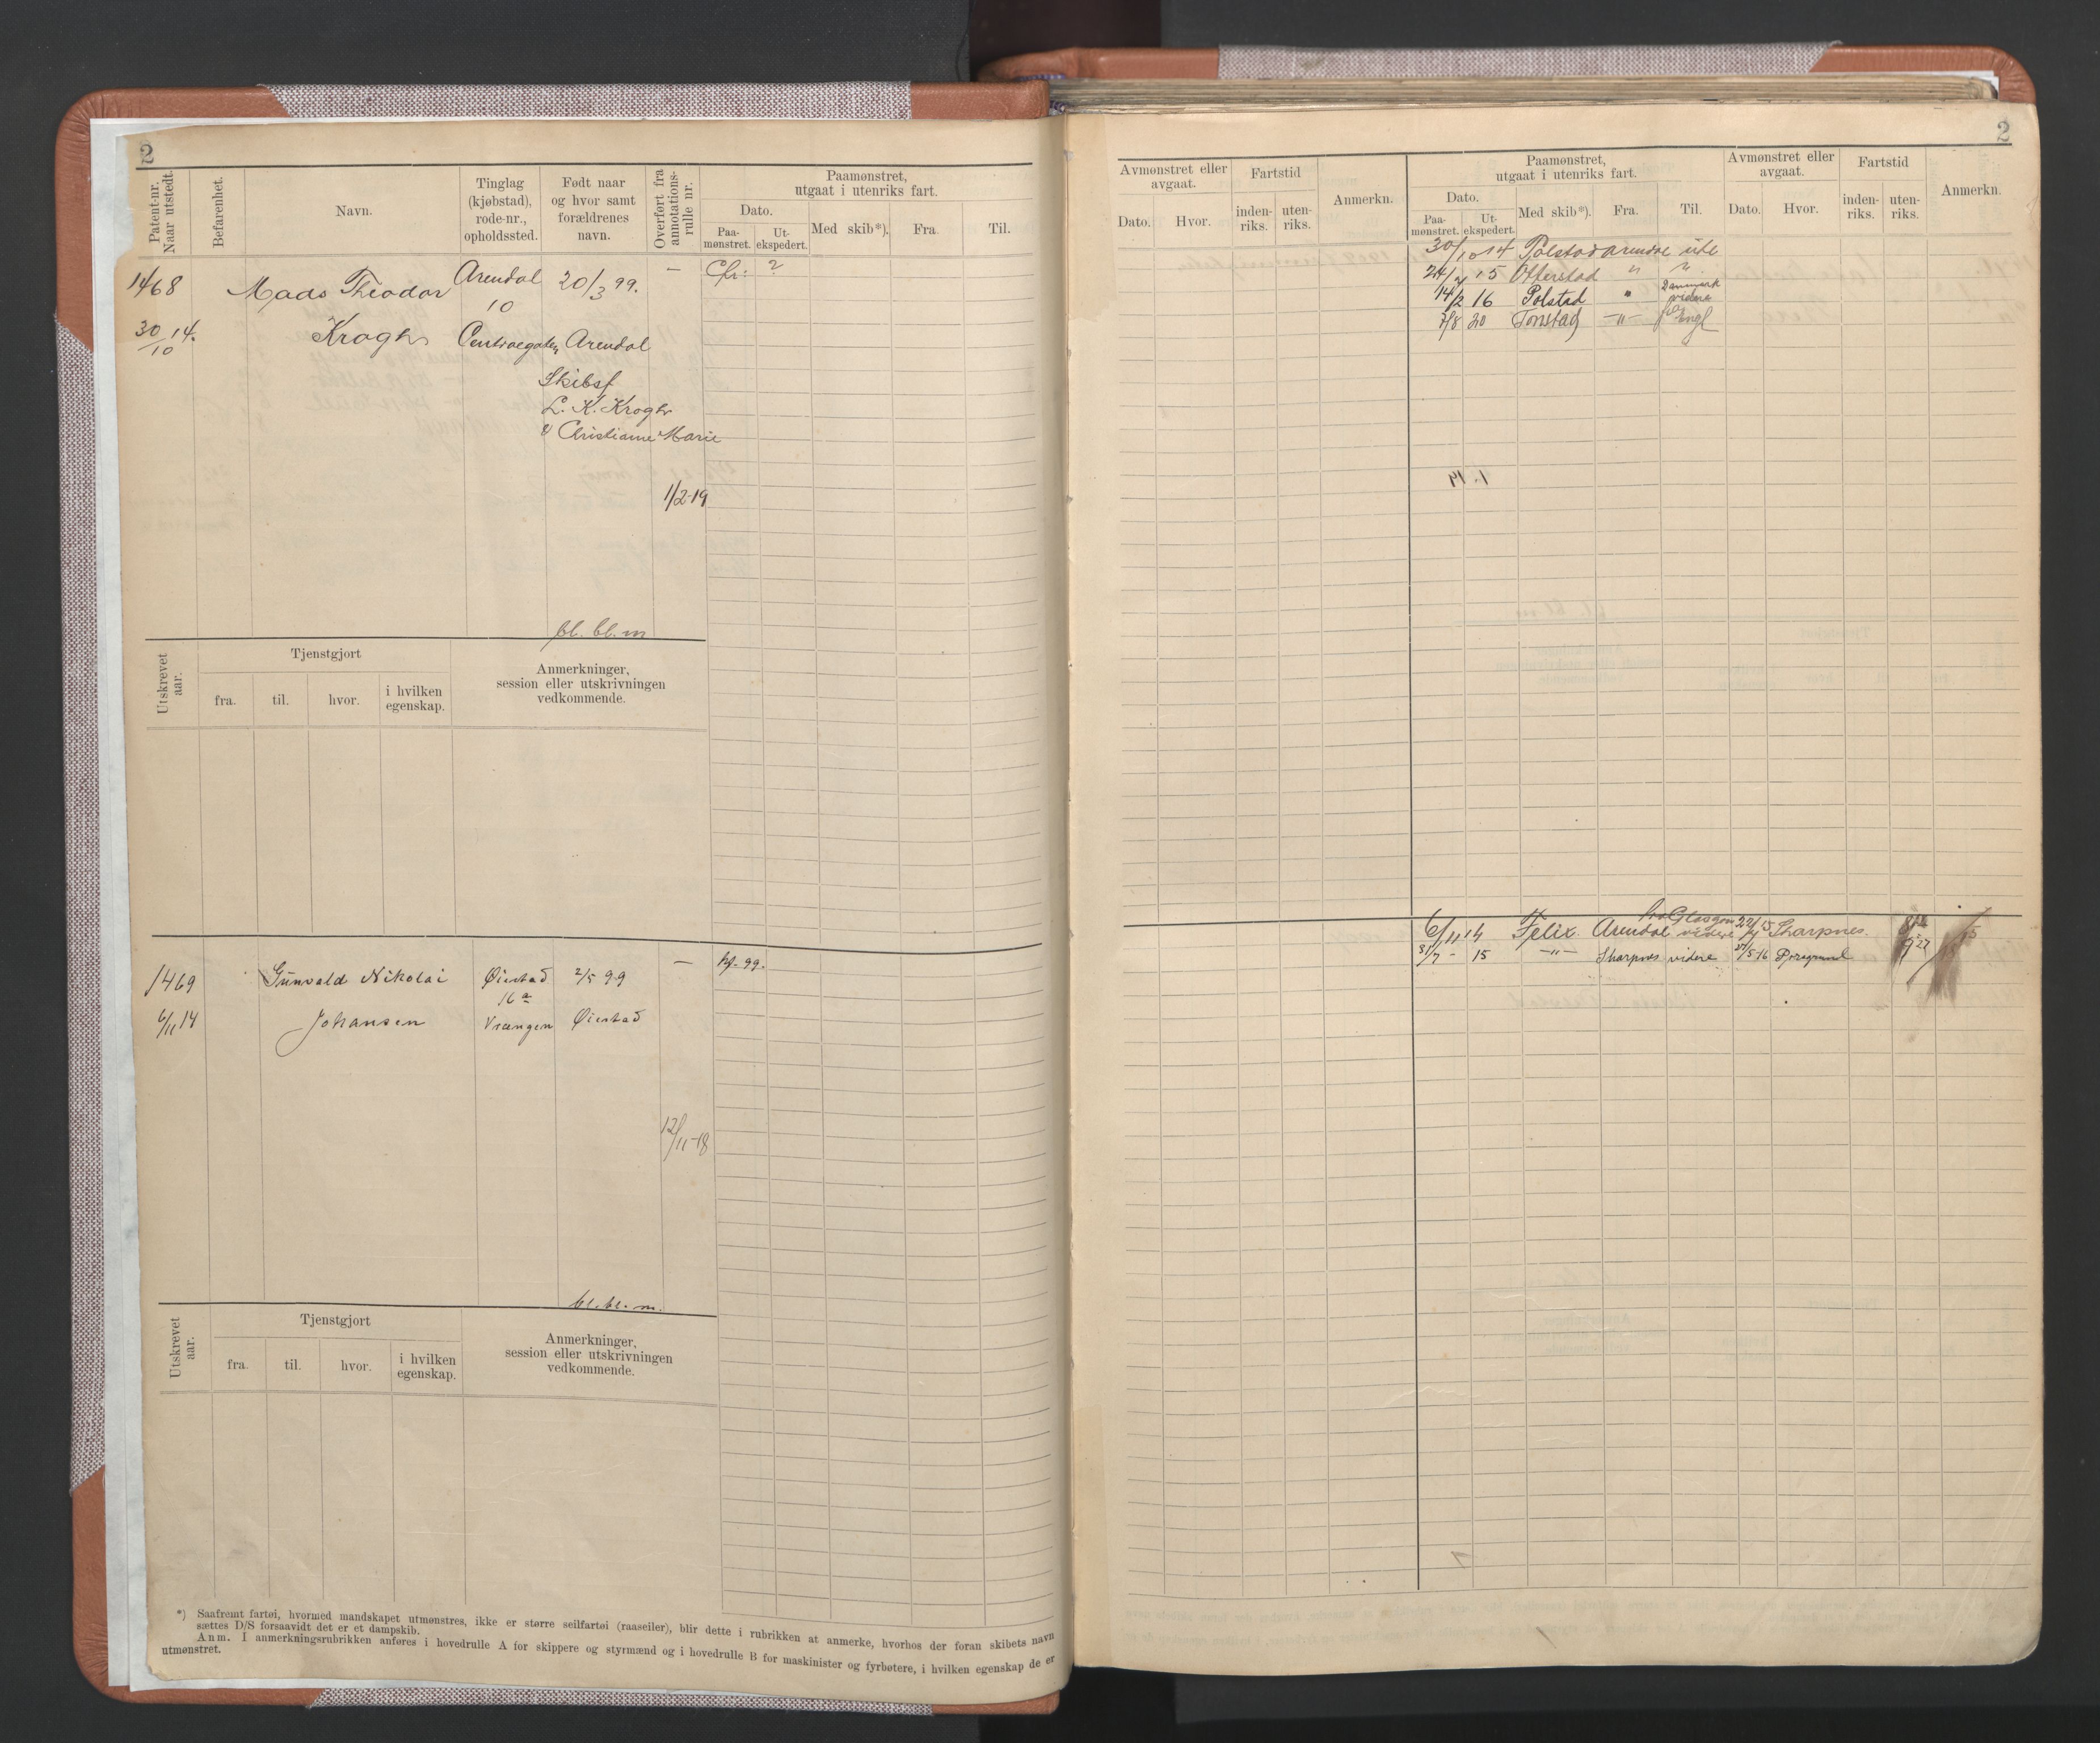 2
Patent-nr. Naar utstedt.
Befarenhet.
Navn.
Tinglag (kjøbstad), rode-nr., opholdssted.
Født naar og hvor samt forældrenes navn.
Overført fra annotations-rulle nr.
Paamønstret, utgaat i utenriks fart.
Dato.
Paa-mønstret.
Ut-ekspedert.
Med skib*).
Fra.
Til.
1468
30/10 14.
Mads Theodor
Krogh
Arendal
10
Centralgaten
20/3 99.
Arendal
Skibsf
L. K. Krogh
& Christiane Marie
—
1/2-19
bl. bl. m
Utskrevet aar.
Tjenstgjort
fra.
til.
hvor.
i hvilken egenskap.
Anmerkninger, session eller utskrivningen vedkommende.
1469
6/11 14
Gunvald Nikolai
Johansen
Øiestad
16a
Vrængen
2/5 99
Øiestad
—
12/11-18
bl. bl. m.
Utskrevet aar.
Tjenstgjort
fra.
til.
hvor.
i hvilken egenskap.
Anmerkninger, session eller utskrivningen vedkommende.
*) Saafremt fartøi, hvormed mandskapet utmønstres, ikke er større seilfartøi (raaseiler), blir dette i rubrikken at anmerke, hvorhos der foran skibets navn
sættes D/S forsaavidt det er et dampskib.
Anm. I anmerkningsrubrikken anføres i hovedrulle A for skippere og styrmænd og i hovedrulle B for maskinister og fyrbøtere, i hvilken egenskap de er
utmønstret.
2
Avmønstret eller avgaat.
Dato.
Hvor.
Fartstid
inden-riks.
uten-riks.
Anmerkn.
Paamønstret, utgaat i utenriks fart.
Dato.
Paa-mønstret.
Ut-ekspedert.
Med skib*).
Fra.
Til.
Avmønstret eller avgaat.
Dato.
Hvor.
Fartstid
inden-riks.
uten-riks.
Anmerkn.
30/10 14 Polstad Arendal
15 Otterstad " "
14/2 16 Polstad " Danmark videre
7/8 20 Tonstad —"— Engl
6/11 14 Felix Arendal Glasgow videre Sharpnes
31/7 - 15 —"— Sharpnes videre Porsgrund